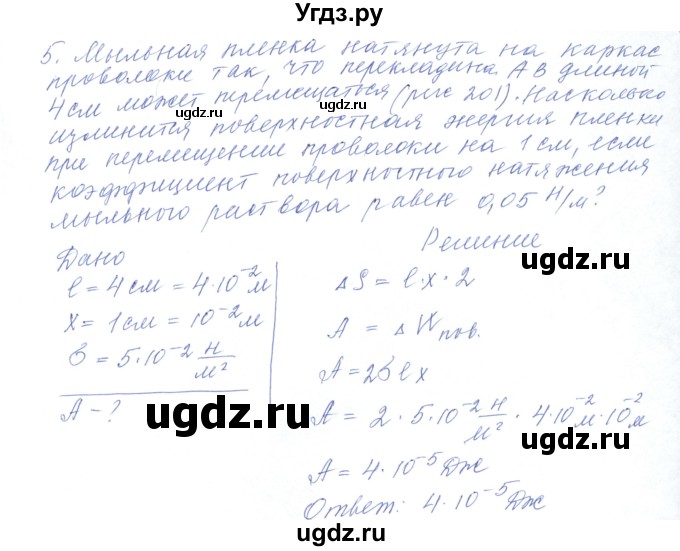 Угдз.ру
5. Мыльная пленка натянута на каркас
проволоки так, что перекладина AB длиной
4 см может перемещаться (рис 201). Насколько
изминится поверхностная энергия пленки
при перемещении проволоки на 1 см, если
коэффициент поверхностного натяжения
мыльного раствора равен 0,05 Н/м?
Дано
l = 4 см = 4·10⁻² м
x = 1 см = 10⁻² м
б = 5·10⁻² н/м²
A - ?
ugdz.ru
Решиние
ugdz.ru
ΔS = l·x·2
A = ΔWпов.
A = 2блx
A = 2·5·10⁻² н/м² · 4·10⁻² м·10⁻² м
A = 4·10⁻⁵ Дж
Ответ: 4·10⁻⁵ Дж
ugdz.ru
ugdz.ru